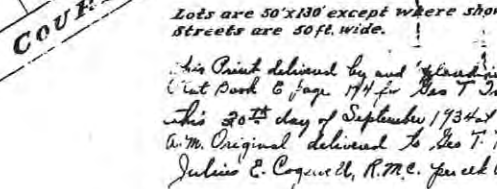 COUR
Lots are 50'x130' except where show
Streets are 50ft. wide.
his Print delivered by and
Plat Book E page 194 for Geo T
this 20th day of September 1934 at
A.M. Original delivered to Geo T.
Julius E. Cogswell, R.M.C.